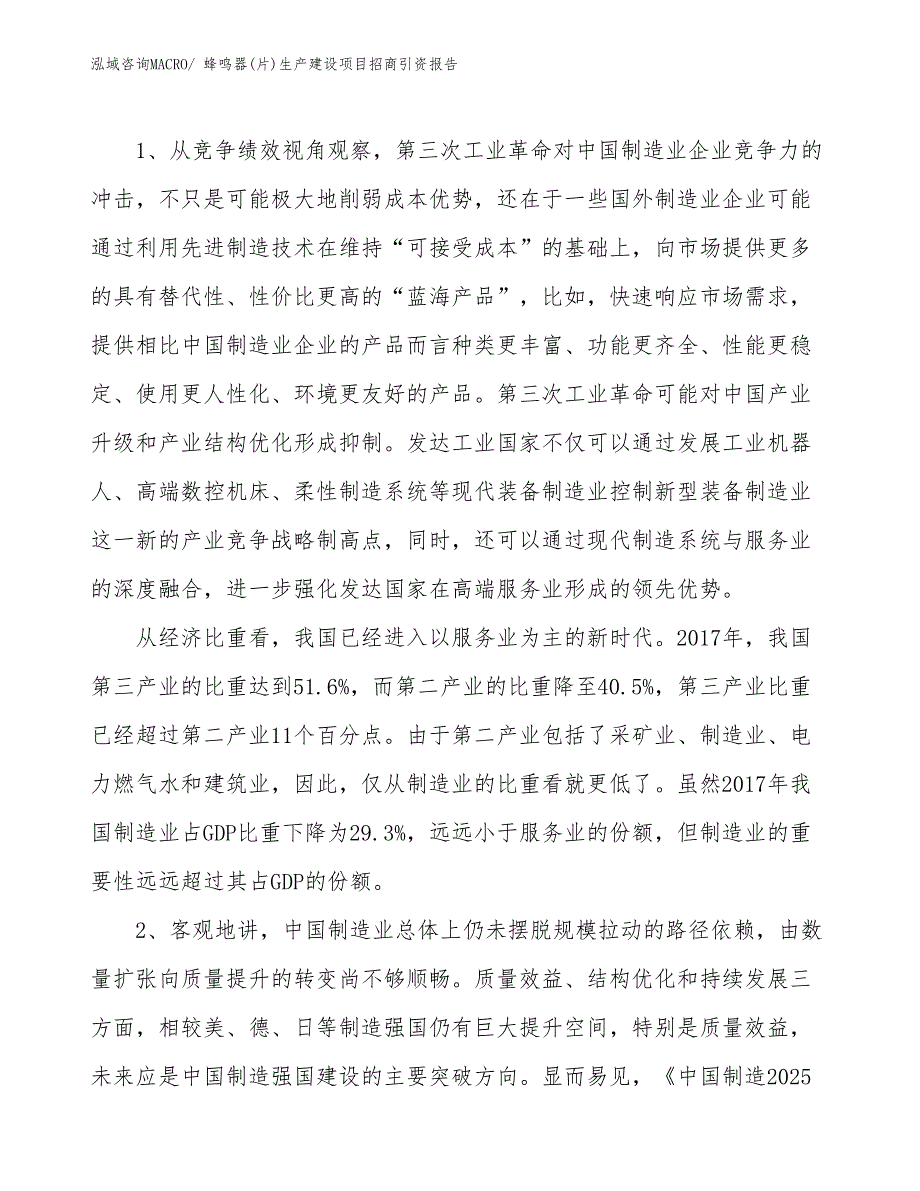 泓域咨询MACRO/ 蜂鸣器(片)生产建设项目招商引资报告
1、从竞争绩效视角观察，第三次工业革命对中国制造业企业竞争力的
冲击，不只是可能极大地削弱成本优势，还在于一些国外制造业企业可能
通过利用先进制造技术在维持“可接受成本”的基础上，向市场提供更多
的具有替代性、性价比更高的“蓝海产品”，比如，快速响应市场需求，
提供相比中国制造业企业的产品而言种类更丰富、功能更齐全、性能更稳
定、使用更人性化、环境更友好的产品。第三次工业革命可能对中国产业
升级和产业结构优化形成抑制。发达工业国家不仅可以通过发展工业机器
人、高端数控机床、柔性制造系统等现代装备制造业控制新型装备制造业
这一新的产业竞争战略制高点，同时，还可以通过现代制造系统与服务业
的深度融合，进一步强化发达国家在高端服务业形成的领先优势。
从经济比重看，我国已经进入以服务业为主的新时代。2017年，我国
第三产业的比重达到51.6%，而第二产业的比重降至40.5%，第三产业比重
已经超过第二产业11个百分点。由于第二产业包括了采矿业、制造业、电
力燃气水和建筑业，因此，仅从制造业的比重看就更低了。虽然2017年我
国制造业占GDP比重下降为29.3%，远远小于服务业的份额，但制造业的重
要性远远超过其占GDP的份额。
2、客观地讲，中国制造业总体上仍未摆脱规模拉动的路径依赖，由数
量扩张向质量提升的转变尚不够顺畅。质量效益、结构优化和持续发展三
方面，相较美、德、日等制造强国仍有巨大提升空间，特别是质量效益，
未来应是中国制造强国建设的主要突破方向。显而易见，《中国制造2025